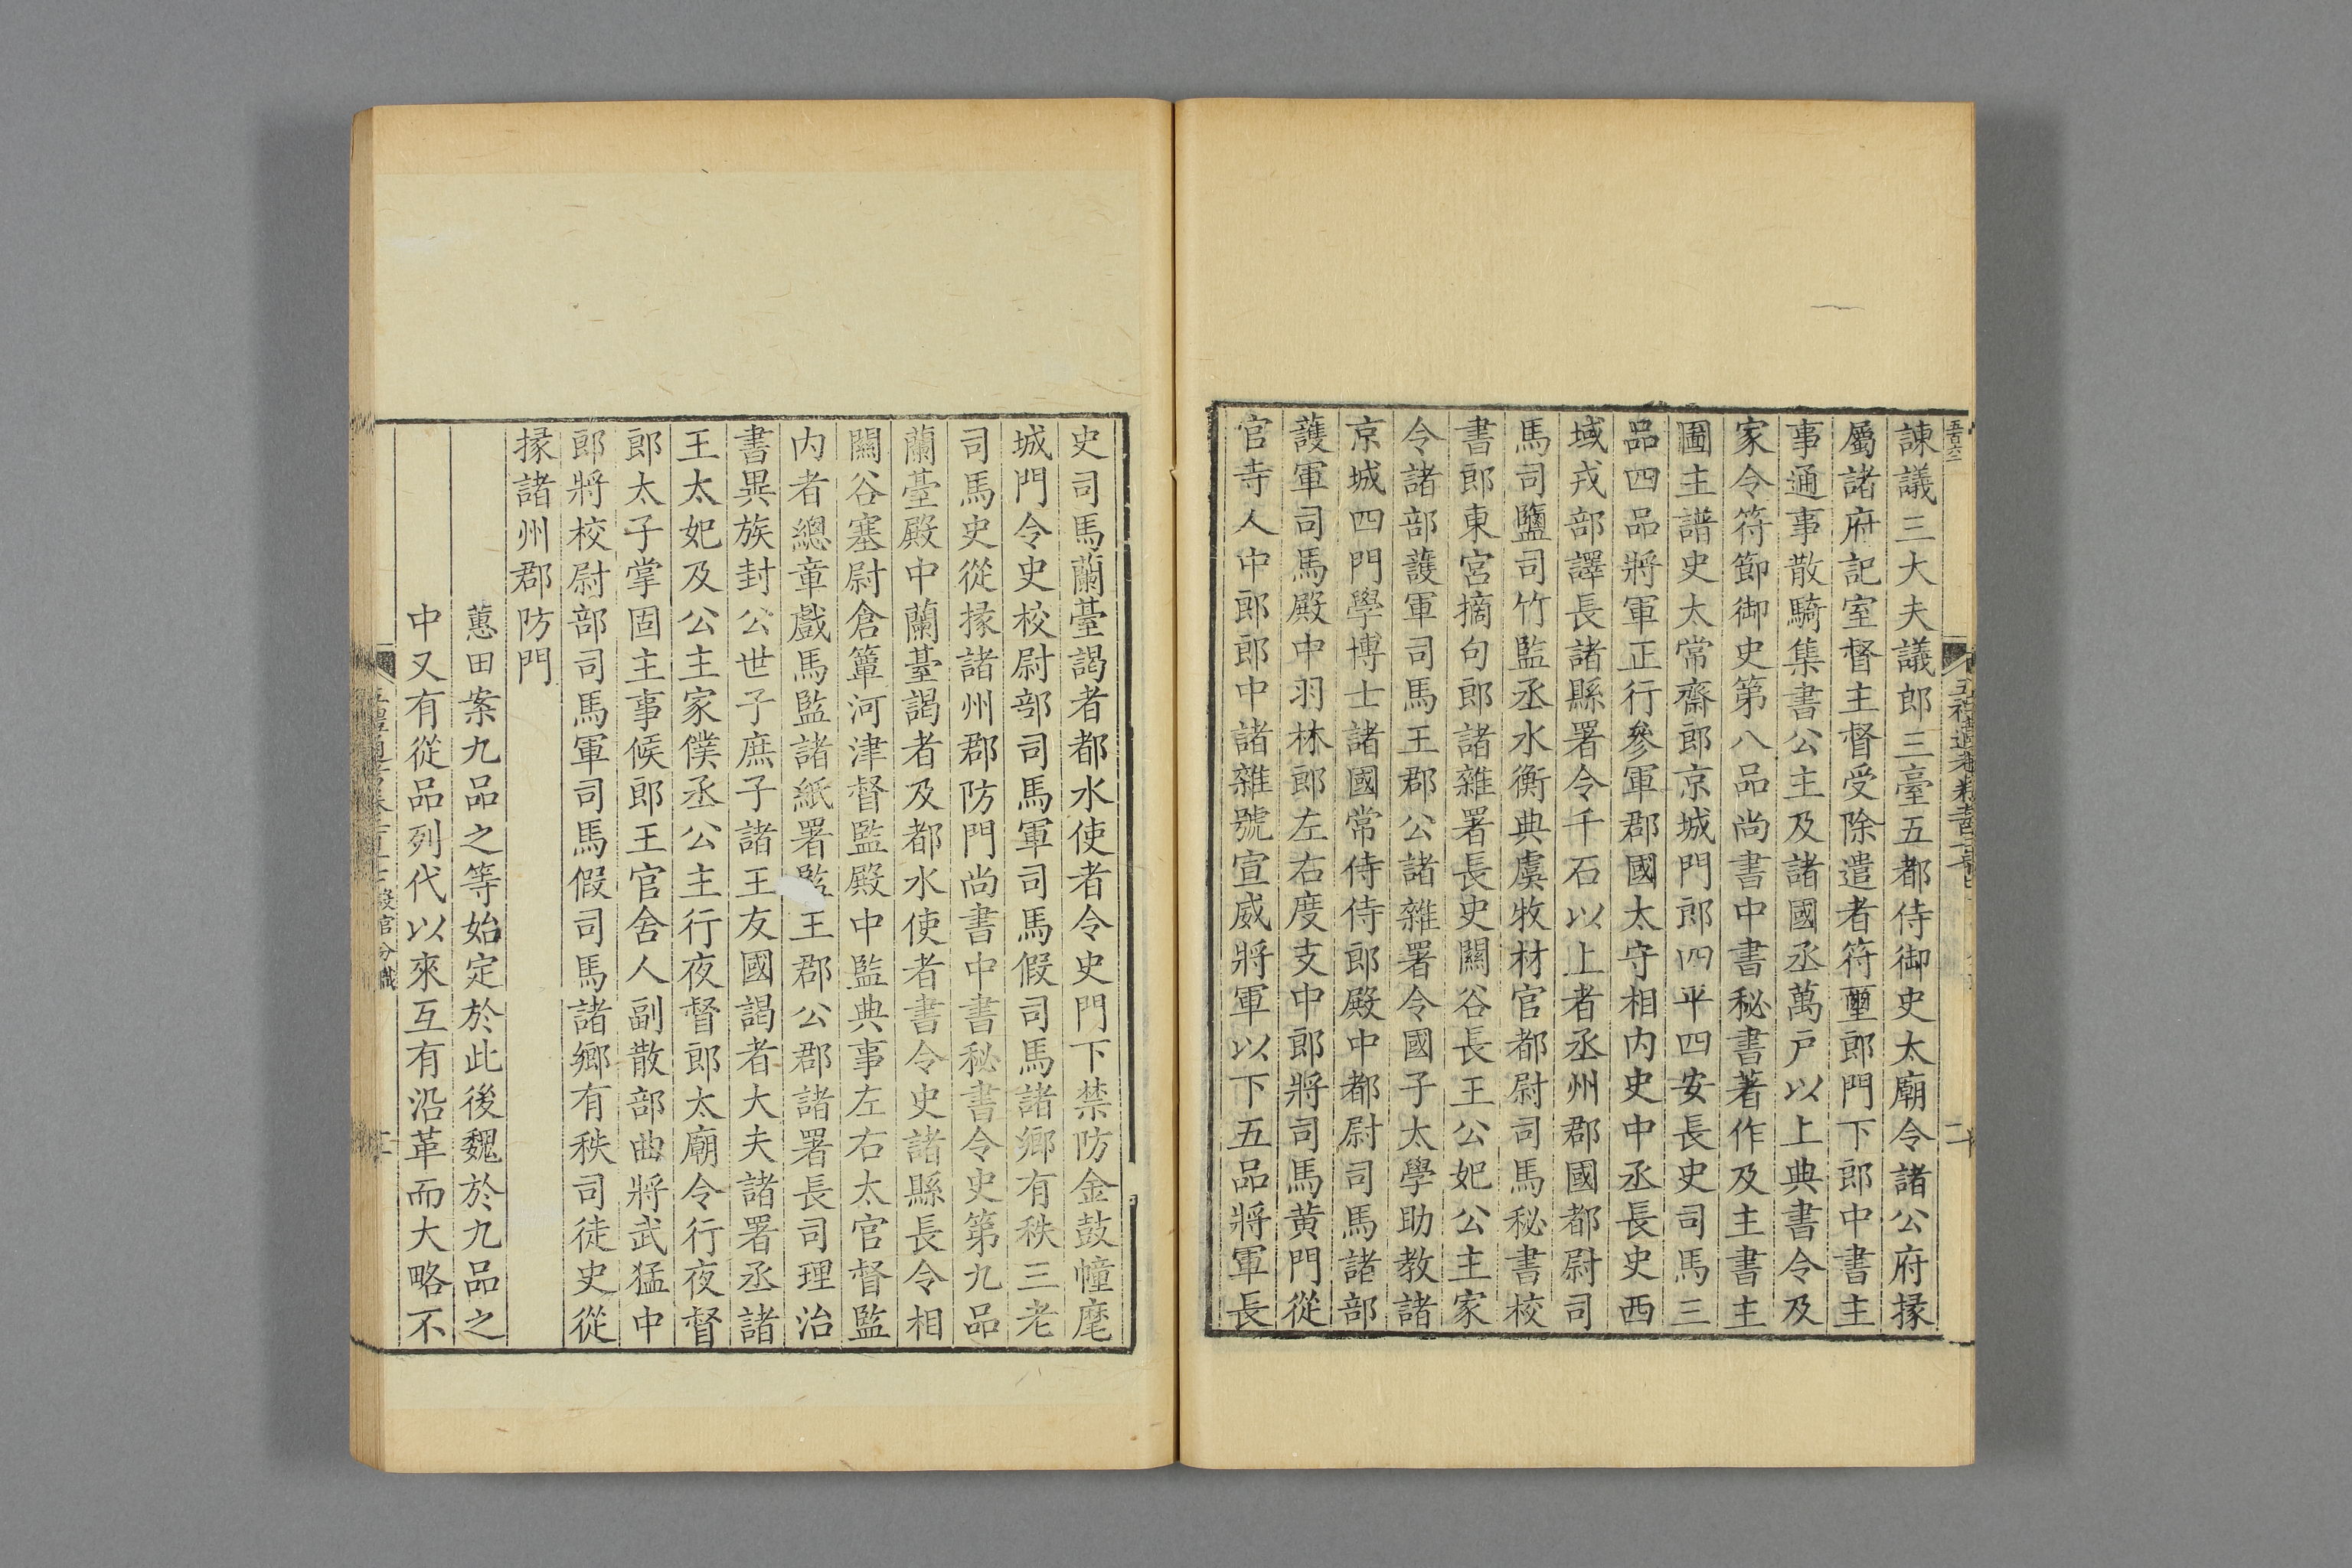 諫議三大夫議郎三臺五都侍御史太廟令諸公府掾
屬諸府記室督主督受除遣者符璽郎門下郎中書主
事通事散騎集書公主及諸國丞萬戶以上典書令及
家令符節御史第八品尚書中書秘書著作及主書主
圖主譜史太常齋郎京城門郎四平四安長史司馬三
品四品將軍正行參軍郡國太守相內史中丞長史西
域戎部譯長諸縣署令千石以上者丞州郡國都尉司
馬司鹽司竹監丞水衡典虞牧材官都尉司馬秘書校
書郎東宮摘句郎諸雜署長史關谷長王公妃公主家
令諸部護軍司馬王郡公諸雜署令國子太學助教諸
京城四門學博士諸國常侍侍郎殿中都尉司馬諸部
護軍司馬殿中羽林郎左右度支中郎將司馬黃門從
官寺人中郎郎中諸雜號宣威將軍以下五品將軍長
史司馬蘭臺謁者都水使者令史門下禁防金鼓幢麾
城門令史校尉部司馬軍司馬假司馬諸鄉有秩三老
司馬史從掾諸州郡防門尚書中書秘書令史第九品
蘭臺殿中蘭臺謁者及都水使者書令史諸縣長令相
關谷塞尉倉簟河津督監殿中監典事左右太官督監
內者總章戲馬監諸紙署監王郡公郡諸署長司理治
書異族封公世子庶子諸王友國謁者大夫諸署丞諸
王太妃及公主家僕丞公主行夜督郎太廟令行夜督
郎太子掌固主事候郎王官舍人副散部曲將武猛中
郎將校尉部司馬軍司馬假司馬諸鄉有秩司徒史從
掾諸州郡防門
蕙田案九品之等始定於此後魏於九品之
中又有從品列代以來互有沿革而大略不
設官分職